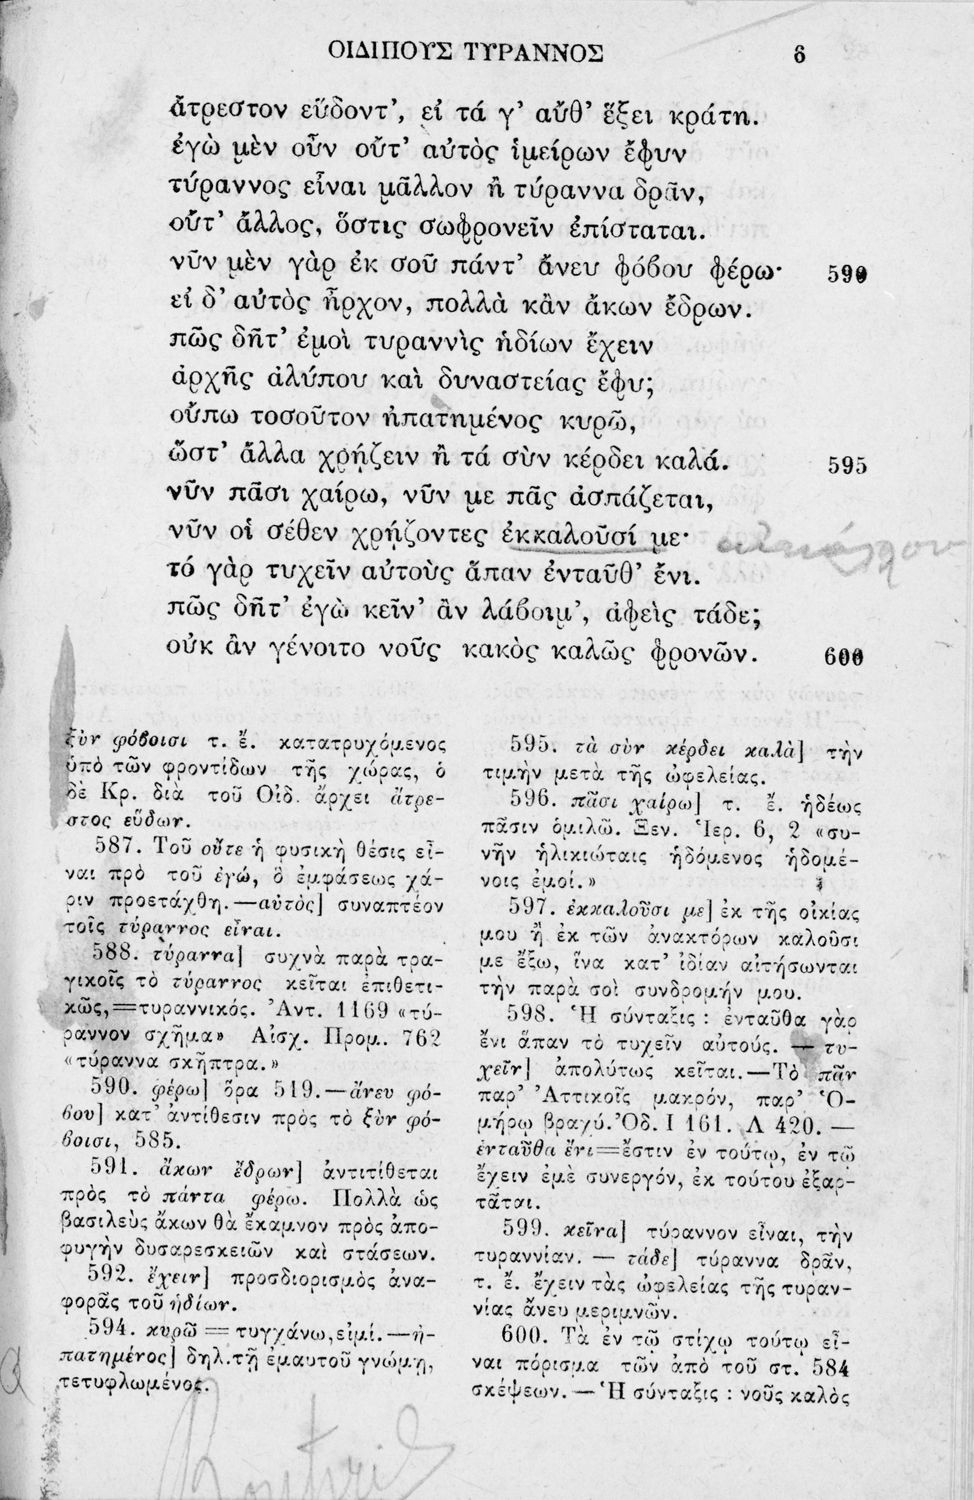 ΟΙΔΙΠΟΥΣ ΤΥΡΑΝΝΟΣ 6
ἄτρεστον εὕδοντ’, εἰ τά γ’ αὔθ’ ἕξει κράτη.
ἐγὼ μὲν οὖν οὔτ’ αὐτὸς ἱμείρων ἔφυν
τύραννος εἶναι μᾶλλον ἢ τύραννα δρᾶν,
οὔτ’ ἄλλος, ὅστις σωφρονεῖν ἐπίσταται.
νῦν μὲν γὰρ ἐκ σοῦ πάντ’ ἄνευ φόβου φέρω· 590
εἰ δ’ αὐτὸς ἦρχον, πολλὰ κἂν ἄκων ἔδρων.
πῶς δῆτ’ ἐμοὶ τυραννὶς ἡδίων ἔχειν
ἀρχῆς ἀλύπου καὶ δυναστείας ἔφυ;
οὔπω τοσοῦτον ἠπατημένος κυρῶ,
ὥστ’ ἄλλα χρῄζειν ἢ τά σὺν κέρδει καλά. 595
νῦν πᾶσι χαίρω, νῦν με πᾶς ἀσπάζεται,
νῦν οἱ σέθεν χρῄζοντες ἐκκαλοῦσί με·
τό γὰρ τυχεῖν αὐτοὺς ἅπαν ἐνταῦθ’ ἔνι.
πῶς δῆτ’ ἐγὼ κεῖν’ ἂν λάβοιμ’, ἀφεὶς τάδε;
οὐκ ἂν γένοιτο νοῦς κακὸς καλῶς φρονῶν. 600
ξὺν φόβοισι τ. ἔ. κατατρυχόμενος
ὑπὸ τῶν φροντίδων τῆς χώρας, ὁ
δὲ Κρ. διὰ τοῦ Οἰδ. ἄρχει ἄτρε-
στος εὕδων.
587. Τοῦ οὔτε ἡ φυσικὴ θέσις εἶ-
ναι πρὸ τοῦ ἐγώ, ὃ ἐμφάσεως χά-
ριν προετάχθη.—αὐτὸς] συναπτέον
τοῖς τύραννος εἶναι.
588. τύραννα] συχνὰ παρὰ τρα-
γικοῖς τὸ τύραννος κεῖται ἐπιθετι-
κῶς,=τυραννικός. Ἀντ. 1169 «τύ-
ραννον σχῆμα» Αἰσχ. Προμ. 762
«τύραννα σκῆπτρα.»
590. φέρω] ὅρα 519.—ἄνευ φό-
βου] κατ’ ἀντίθεσιν πρὸς τὸ ξὺν φό-
βοισι, 585.
591. ἄκων ἔδρων] ἀντιτίθεται
πρὸς τὸ πάντα φέρω. Πολλὰ ὡς
βασιλεὺς ἄκων θὰ ἔκαμνον πρὸς ἀπο-
φυγὴν δυσαρεσκειῶν καὶ στάσεων.
592. ἔχειν] προσδιορισμὸς ἀνα-
φορᾶς τοῦ ἡδίων.
594. κυρῶ = τυγχάνω, εἰμί.—ἠ-
πατημένος] δηλ. τῇ ἐμαυτοῦ γνώμῃ,
τετυφλωμένος.
595. τὰ σὺν κέρδει καλὰ] τὴν
τιμὴν μετὰ τῆς ὠφελείας.
596. πᾶσι χαίρω] τ. ἔ. ἡδέως
πᾶσιν ὁμιλῶ. Ξεν. Ἱερ. 6, 2 «συ-
νῆν ἡλικιώταις ἡδόμενος ἡδομέ-
νοις ἐμοί.»
597. ἐκκαλοῦσι με] ἐκ τῆς οἰκίας
μου ἢ ἐκ τῶν ἀνακτόρων καλοῦσι
με ἔξω, ἵνα κατ’ ἰδίαν αἰτήσωνται
τὴν παρὰ σοὶ συνδρομήν μου.
598. Ἡ σύνταξις : ἐνταῦθα γὰρ
ἔνι ἅπαν τὸ τυχεῖν αὐτούς. — τυ-
χεῖν] ἀπολύτως κεῖται.—Τὸ πᾶν
παρ’ Ἀττικοῖς μακρόν, παρ’ Ὁ-
μήρῳ βραχύ. Ὀδ. Ι 161. Λ 420. —
ἐνταῦθα ἔνι=ἔστιν ἐν τούτῳ, ἐν τῷ
ἔχειν ἐμὲ συνεργόν, ἐκ τούτου ἐξαρ-
τᾶται.
599. κεῖνα] τύραννον εἶναι, τὴν
τυραννίαν. — τάδε] τύραννα δρᾶν,
τ. ἔ. ἔχειν τὰς ὠφελείας τῆς τυραν-
νίας ἄνευ μεριμνῶν.
600. Τὰ ἐν τῷ στίχῳ τούτῳ εἶ-
ναι πόρισμα τῶν ἀπὸ τοῦ στ. 584
σκέψεων. — Ἡ σύνταξις : νοῦς καλὸς